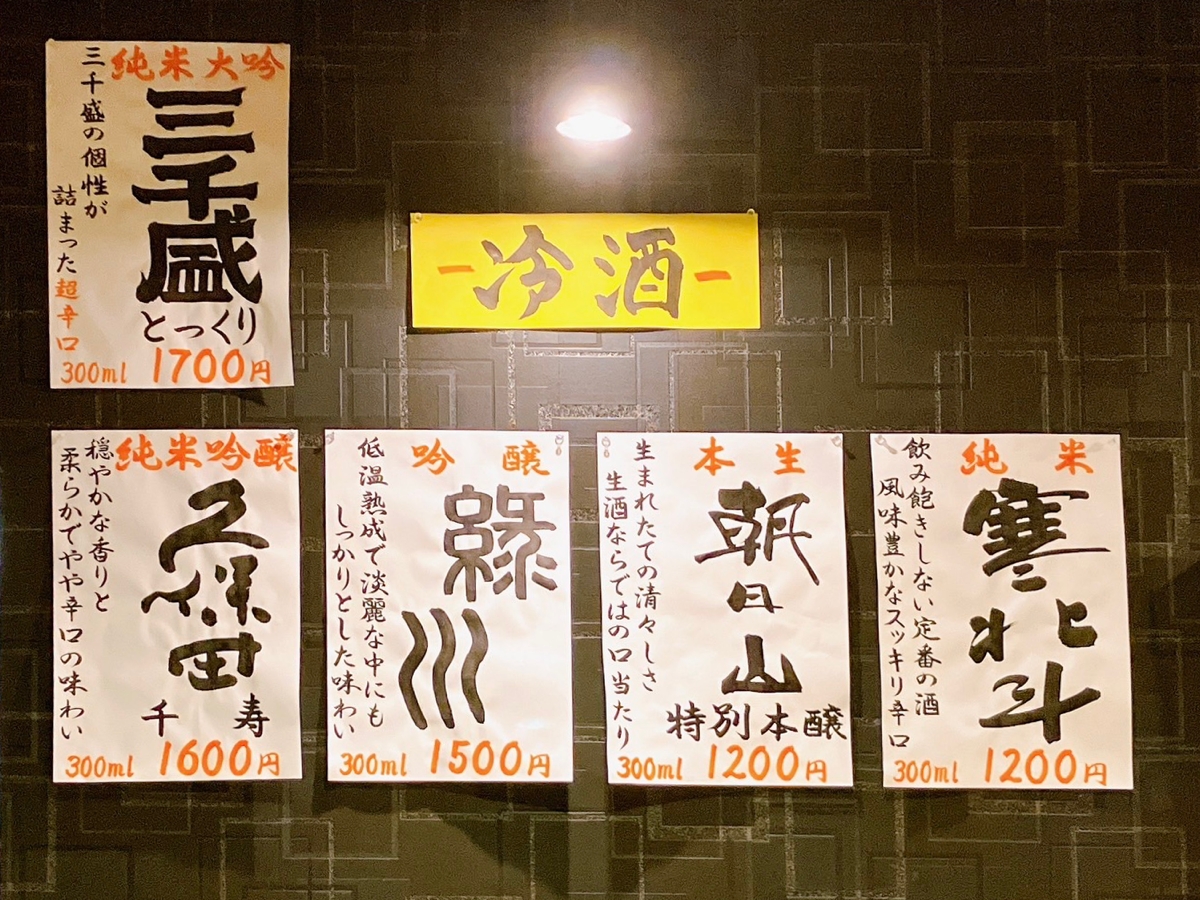 純米大吟
三千盛
とっくり
三千盛の個性が
詰まった超辛口
300ml 1700円
－冷酒－
純米吟醸
久保田
千寿
穏やかな香りと
柔らかでやや辛口の味わい
300ml 1600円
吟醸
緑川
低温熟成で淡麗な中にも
しっかりとした味わい
300ml 1500円
本生
朝日山
特別本醸
生まれたての清々しさ
生酒ならではの口当たり
300ml 1200円
純米
寒北斗
飲み飽きしない定番の酒
風味豊かなスッキリ辛口
300ml 1200円